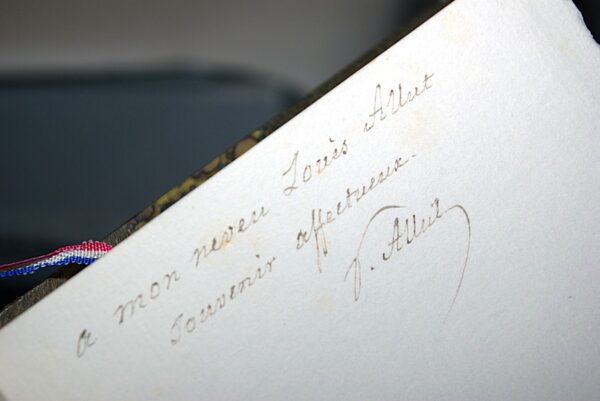 a mon neveu Louis Allut
souvenir affectueux.
P. Allut